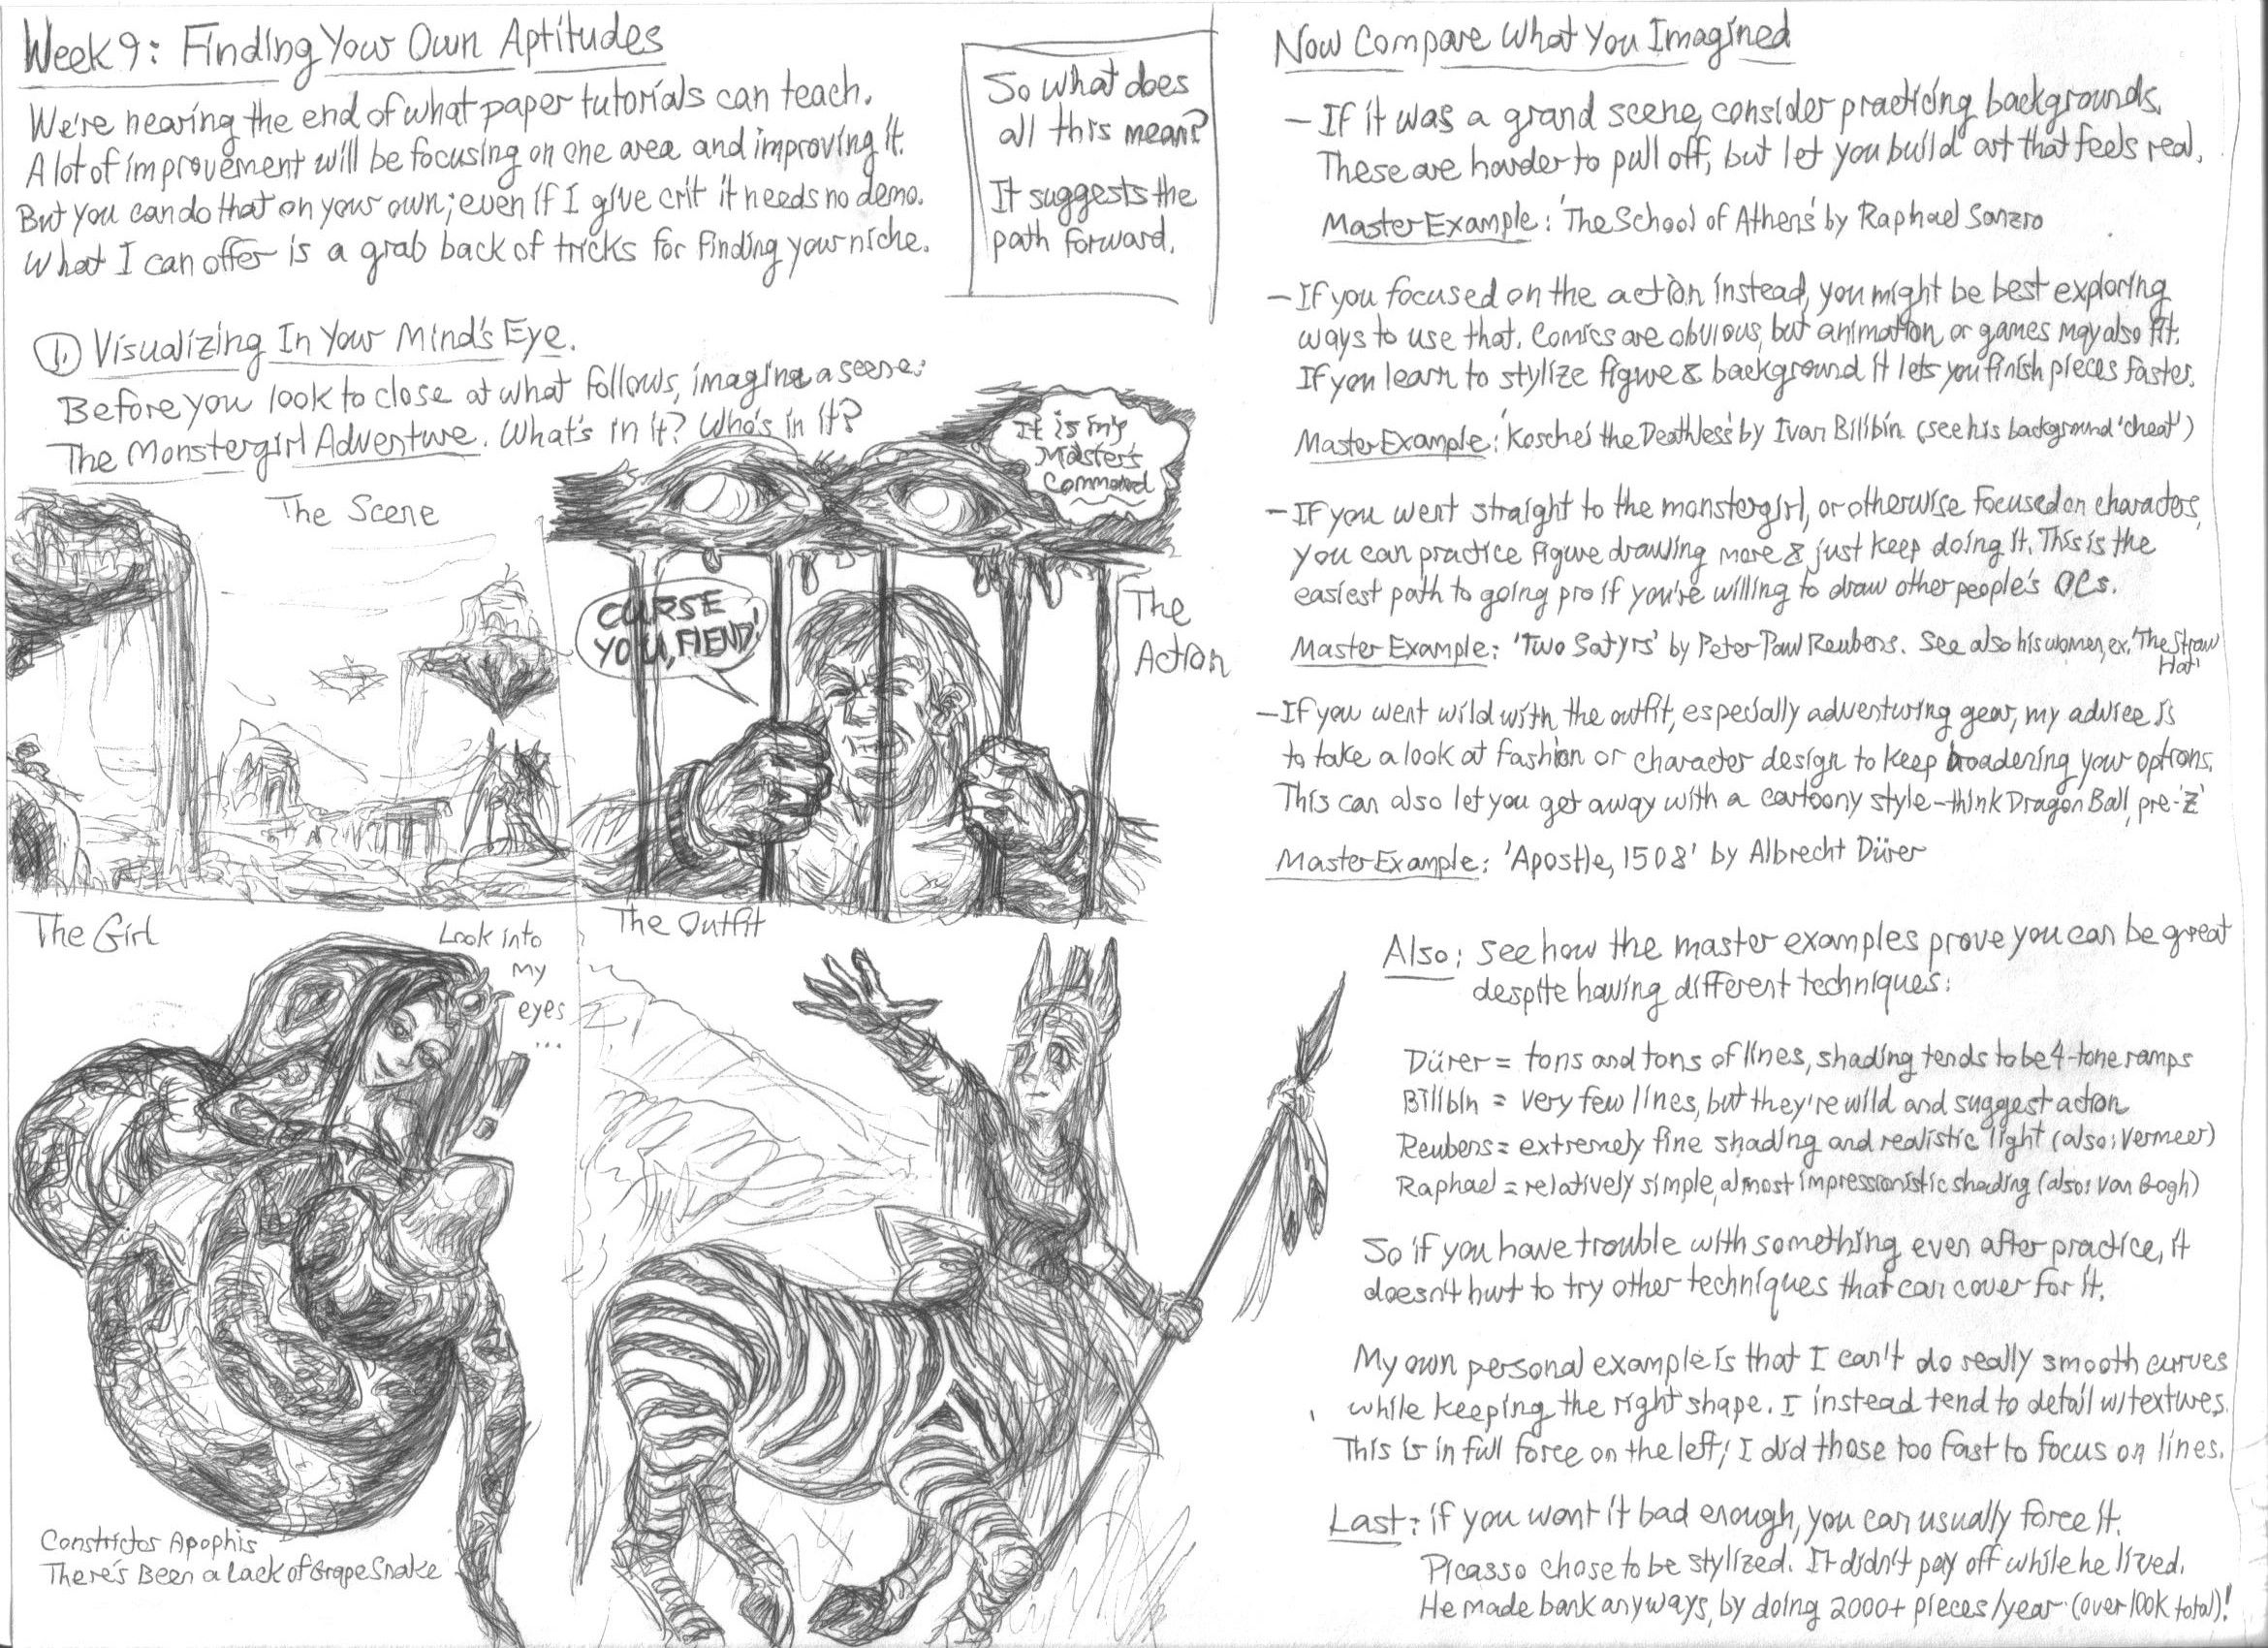 Week 9: Finding Your Own Aptitudes
We're nearing the end of what paper tutorials can teach.
A lot of improvement will be focusing on one area and improving it.
But you can do that on your own; even if I give crit it needs no demo.
What I can offer is a grab back of tricks for finding your niche.
So what does
all this mean?
It suggests the
path forward.
1. Visualizing In Your Mind's Eye.
Before you look to close at what follows, imagine a scene:
The Monstergirl Adventure. What's in it? Who's in it?
The Scene
It is my
Master's
Command
CURSE
YOU, FIEND!
The
Action
The Girl
Look into
my
eyes
...
!
The Outfit
Constrictor Apophis
There's Been a Lack of Grape Snake
Now Compare What You Imagined
- If it was a grand scene, consider practicing backgrounds.
These are harder to pull off, but let you build art that feels real.
Master Example: 'The School of Athens' by Raphael Sanzio
- If you focused on the action instead, you might be best exploring
ways to use that. Comics are obvious, but animation or games may also fit.
If you learn to stylize figure & background it lets you finish pieces faster.
Master Example: 'Koschei the Deathless' by Ivan Bilibin (see his background 'cheat')
- If you went straight to the monstergirl, or otherwise focused on characters,
you can practice figure drawing more & just keep doing it. This is the
easiest path to going pro if you're willing to draw other people's OCs.
Master Example: 'Two Satyrs' by Peter Paul Reubens. See also his women, ex. 'The Straw
Hat'
- If you went wild with the outfit, especially adventuring gear, my advice is
to take a look at fashion or character design to keep broadening your options.
This can also let you get away with a cartoony style - think Dragon Ball, pre-'Z'
Master Example: 'Apostle, 1508' by Albrecht Dürer
Also: see how the master examples prove you can be great
despite having different techniques:
Dürer = tons and tons of lines, shading tends to be 4-tone ramps
Bilibin = very few lines, but they're wild and suggest action
Reubens = extremely fine shading and realistic light (also: Vermeer)
Raphael = relatively simple, almost impressionistic shading (also: Van Gogh)
So if you have trouble with something even after practice, it
doesn't hurt to try other techniques that can cover for it.
My own personal example is that I can't do really smooth curves
while keeping the right shape. I instead tend to detail w/textures.
This is in full force on the left; I did those too fast to focus on lines.
Last: if you want it bad enough, you can usually force it.
Picasso chose to be stylized. It didn't pay off while he lived.
He made bank anyways, by doing 2000+ pieces/year (over 100k total)!